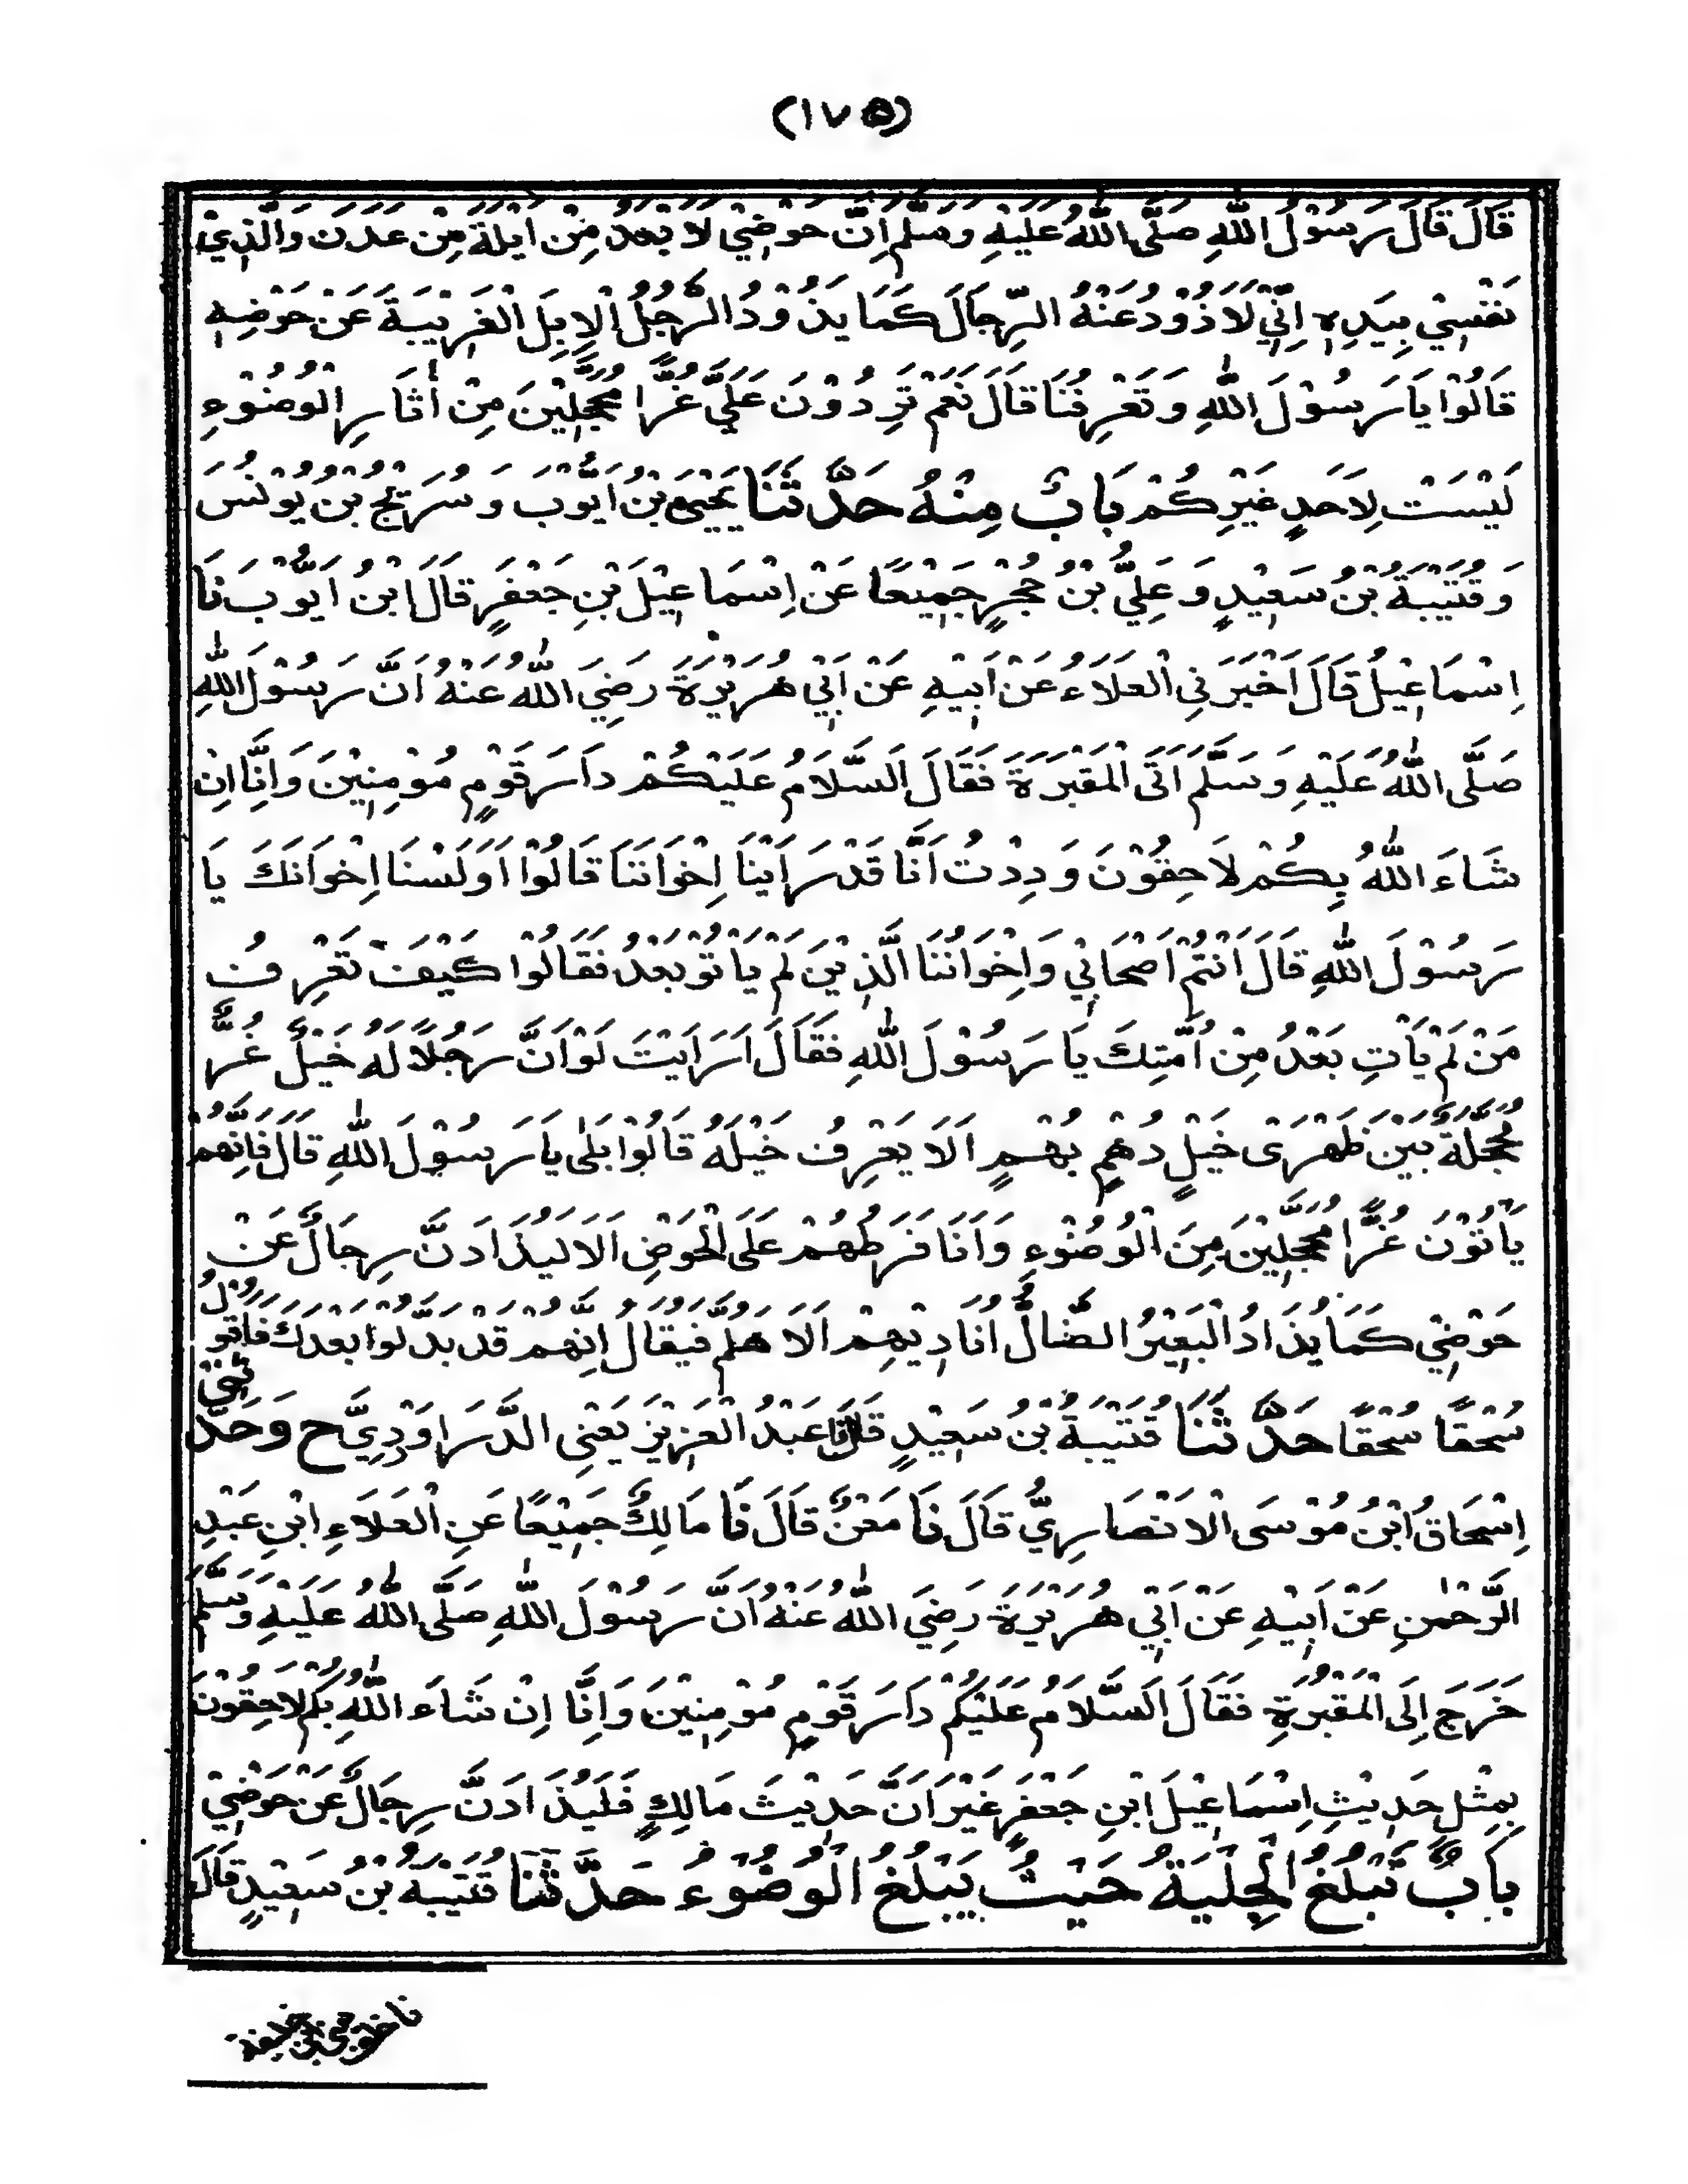 (١٧٥)
قَالَ قَالَ رَسُوْلُ اللّٰهِ صَلَّى اللّٰهُ عَلَيْهِ وَسَلَّمَ اِنَّ حَوْضِيْ لَاَبْعَدُ مِنْ اَيْلَةَ مِنْ عَدَنَ وَالَّذِيْ
نَفْسِيْ بِيَدِهٖ اِنِّيْ لَاَذُوْدُ عَنْهُ الرِّجَالَ كَمَا يَذُوْدُ الرَّجُلُ الْاِبِلَ الْغَرِيْبَةَ عَنْ حَوْضِهٖ
قَالُوْا يَا رَسُوْلَ اللّٰهِ وَتَعْرِفُنَا قَالَ نَعَمْ تَرِدُوْنَ عَلَيَّ غُرًّا مُحَجَّلِيْنَ مِنْ اٰثَارِ الْوُضُوْءِ
لَيْسَتْ لِاَحَدٍ غَيْرِكُمْ بَابٌ مِنْهُ حَدَّثَنَا يَحْيَى بْنُ اَيُّوْبَ وَسُرَيْجُ بْنُ يُوْنُسَ
وَقُتَيْبَةُ بْنُ سَعِيْدٍ وَعَلِيُّ بْنُ حُجْرٍ جَمِيْعًا عَنْ اِسْمَاعِيْلَ بْنِ جَعْفَرٍ قَالَ ابْنُ اَيُّوْبَ نَا
اِسْمَاعِيْلُ قَالَ اَخْبَرَنِي الْعَلَاءُ عَنْ اَبِيْهِ عَنْ اَبِيْ هُرَيْرَةَ رَضِيَ اللّٰهُ عَنْهُ اَنَّ رَسُوْلَ اللّٰهِ
صَلَّى اللّٰهُ عَلَيْهِ وَسَلَّمَ اَتَى الْمَقْبَرَةَ فَقَالَ اَلسَّلَامُ عَلَيْكُمْ دَارَ قَوْمٍ مُؤْمِنِيْنَ وَاِنَّا اِنْ
شَاءَ اللّٰهُ بِكُمْ لَاحِقُوْنَ وَدِدْتُ اَنَّا قَدْ رَاَيْنَا اِخْوَانَنَا قَالُوْا اَوَلَسْنَا اِخْوَانَكَ يَا
رَسُوْلَ اللّٰهِ قَالَ اَنْتُمْ اَصْحَابِيْ وَاِخْوَانُنَا الَّذِيْنَ لَمْ يَاْتُوْا بَعْدُ فَقَالُوْا كَيْفَ تَعْرِفُ
مَنْ لَمْ يَاْتِ بَعْدُ مِنْ اُمَّتِكَ يَا رَسُوْلَ اللّٰهِ فَقَالَ اَرَاَيْتَ لَوْ اَنَّ رَجُلًا لَهُ خَيْلٌ غُرٌّ
مُحَجَّلَةٌ بَيْنَ ظَهْرَىْ خَيْلٍ دُهْمٍ بُهْمٍ اَلَا يَعْرِفُ خَيْلَهُ قَالُوْا بَلٰى يَا رَسُوْلَ اللّٰهِ قَالَ فَاِنَّهُمْ
يَاْتُوْنَ غُرًّا مُحَجَّلِيْنَ مِنَ الْوُضُوْءِ وَاَنَا فَرَطُهُمْ عَلَى الْحَوْضِ اَلَا لَيُذَادَنَّ رِجَالٌ عَنْ
حَوْضِيْ كَمَا يُذَادُ الْبَعِيْرُ الضَّالُّ اُنَادِيْهِمْ اَلَا هَلُمَّ فَيُقَالُ اِنَّهُمْ قَدْ بَدَّلُوْا بَعْدَكَ فَاَقُوْلُ
سُحْقًا سُحْقًا حَدَّثَنَا قُتَيْبَةُ بْنُ سَعِيْدٍ قَالَ نَا عَبْدُ الْعَزِيْزِ يَعْنِى الدَّرَاوَرْدِيَّ ح وَحَدَّثَنِيْ
اِسْحَاقُ ابْنُ مُوْسَى الْاَنْصَارِيُّ قَالَ نَا مَعْنٌ قَالَ نَا مَالِكٌ جَمِيْعًا عَنِ الْعَلَاءِ ابْنِ عَبْدِ
الرَّحْمٰنِ عَنْ اَبِيْهِ عَنْ اَبِيْ هُرَيْرَةَ رَضِيَ اللّٰهُ عَنْهُ اَنَّ رَسُوْلَ اللّٰهِ صَلَّى اللّٰهُ عَلَيْهِ وَسَلَّمَ
خَرَجَ اِلَى الْمَقْبُرَةِ فَقَالَ اَلسَّلَامُ عَلَيْكُمْ دَارَ قَوْمٍ مُؤْمِنِيْنَ وَاِنَّا اِنْ شَاءَ اللّٰهُ بِكُمْ لَاحِقُوْنَ
بِمِثْلِ حَدِيْثِ اِسْمَاعِيْلَ ابْنِ جَعْفَرٍ غَيْرَ اَنَّ حَدِيْثَ مَالِكٍ فَلَيُذَادَنَّ رِجَالٌ عَنْ حَوْضِيْ
بَابٌ تَبْلُغُ الْحِلْيَةُ حَيْثُ يَبْلُغُ الْوُضُوْءُ حَدَّثَنَا قُتَيْبَةُ بْنُ سَعِيْدٍ قَالَ
نا خلف يعني ابن خليفة